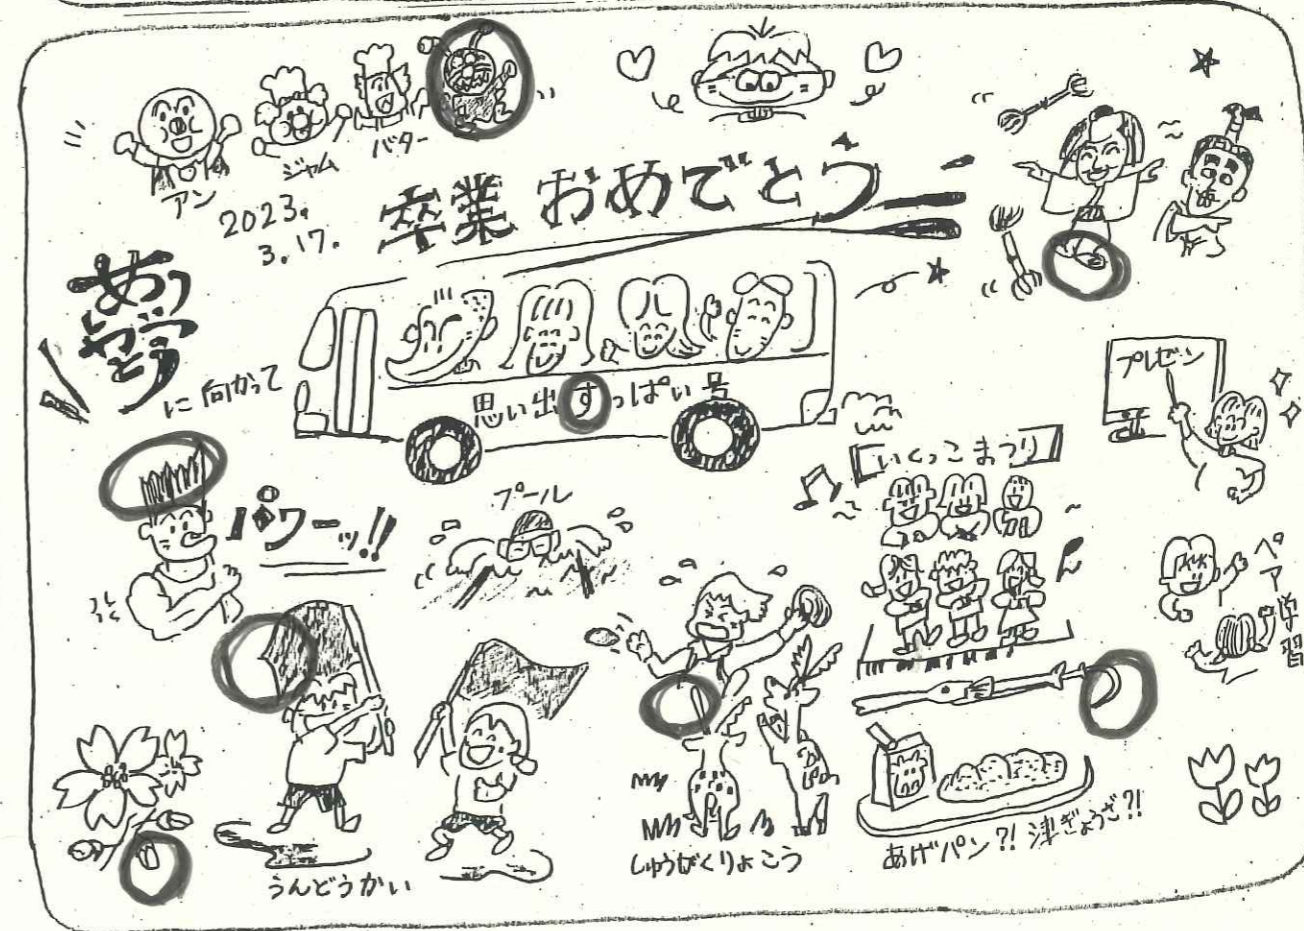 アン
ジャム
バター
2023.
3.17.
卒業 おめでとう
夢
に向かって
思い出すっぱい号
プレゼン
いくっこまつり
パワーッ!!
プール
ペア学習
うんどうかい
しゅうがくりょこう
あげパン?! 津ぎょうざ?!